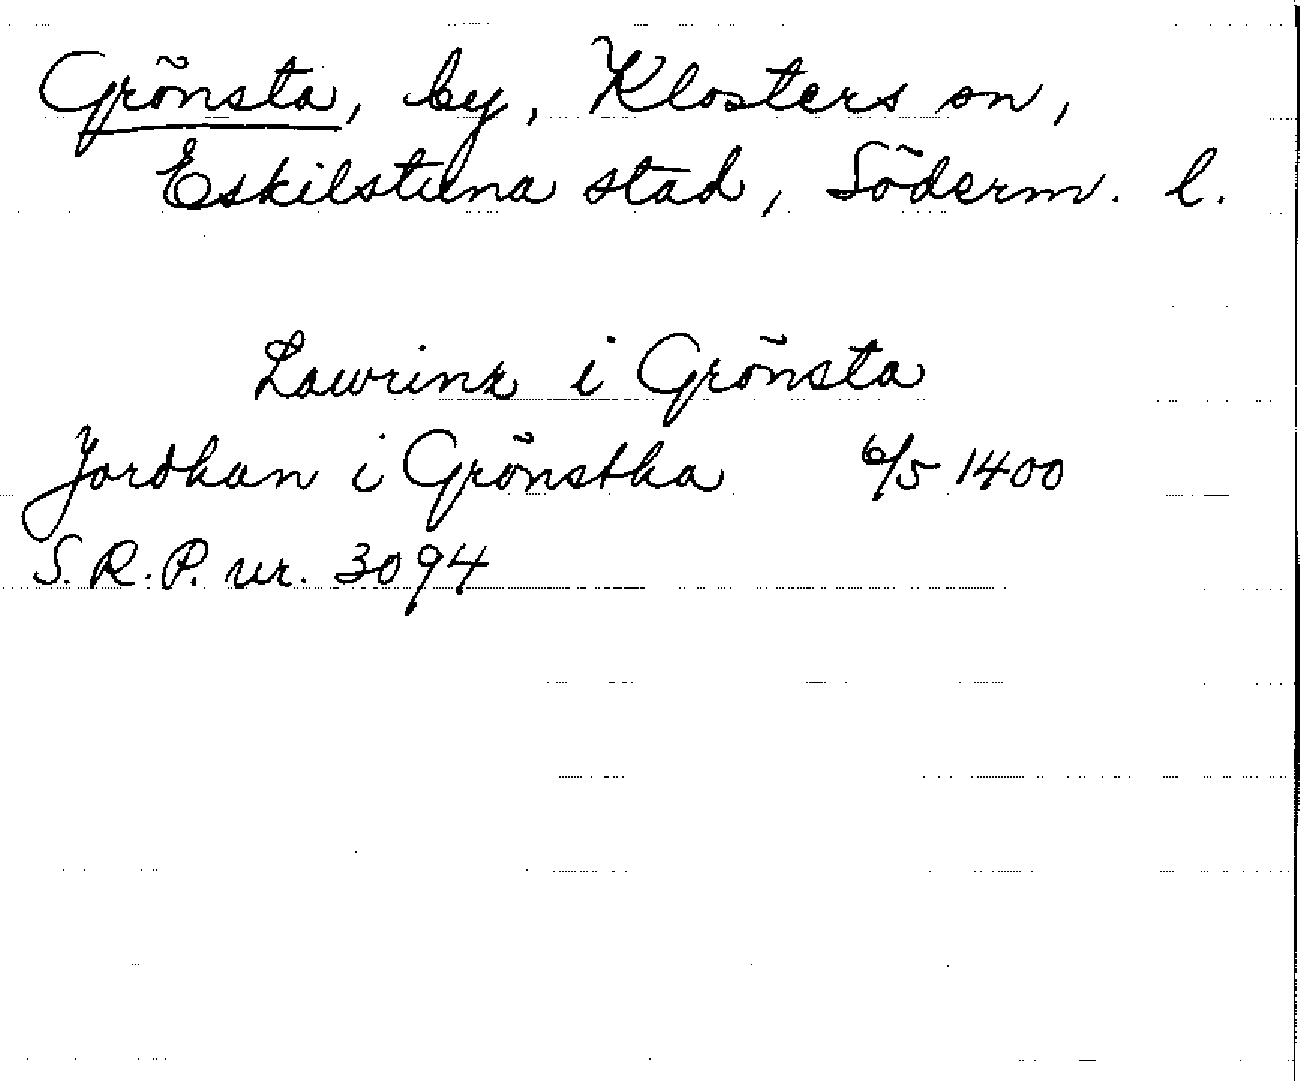 Grönsta, by, Klosters sn,
Eskilstuna stad, Söderm. l.
Lawrinz i Grönsta
Jordhan i Grönstha 6/5 1400
S.R.P. nr. 3094